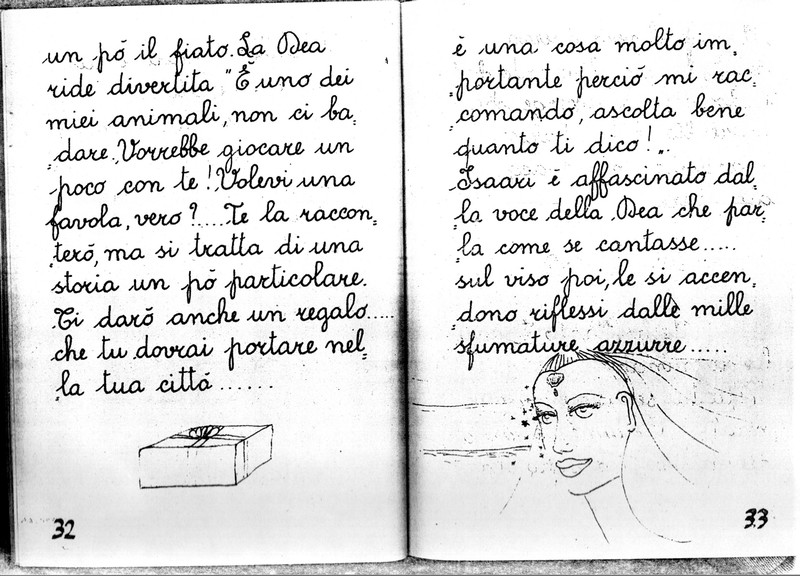 un pó il fiato. La Dea
ride divertita "É uno dei
miei animali, non ci ba„
„dare. Vorrebbe giocare un
poco con te! Volevi una
favola, vero?.... Te la raccon„
„teró, ma si tratta di una
storia un pó particolare.
Ti daró anche un regalo.....
che tu dovrai portare nel„
„la tua cittá ......
32
è una cosa molto im„
„portante perció mi rac„
„comando, ascolta bene
quanto ti dico!„.
Isaari è affascinato dal„
„la voce della Dea che par„
„la come se cantasse.....
sul viso poi, le si accen„
„dono riflessi dalle mille
sfumature azzurre.....
33